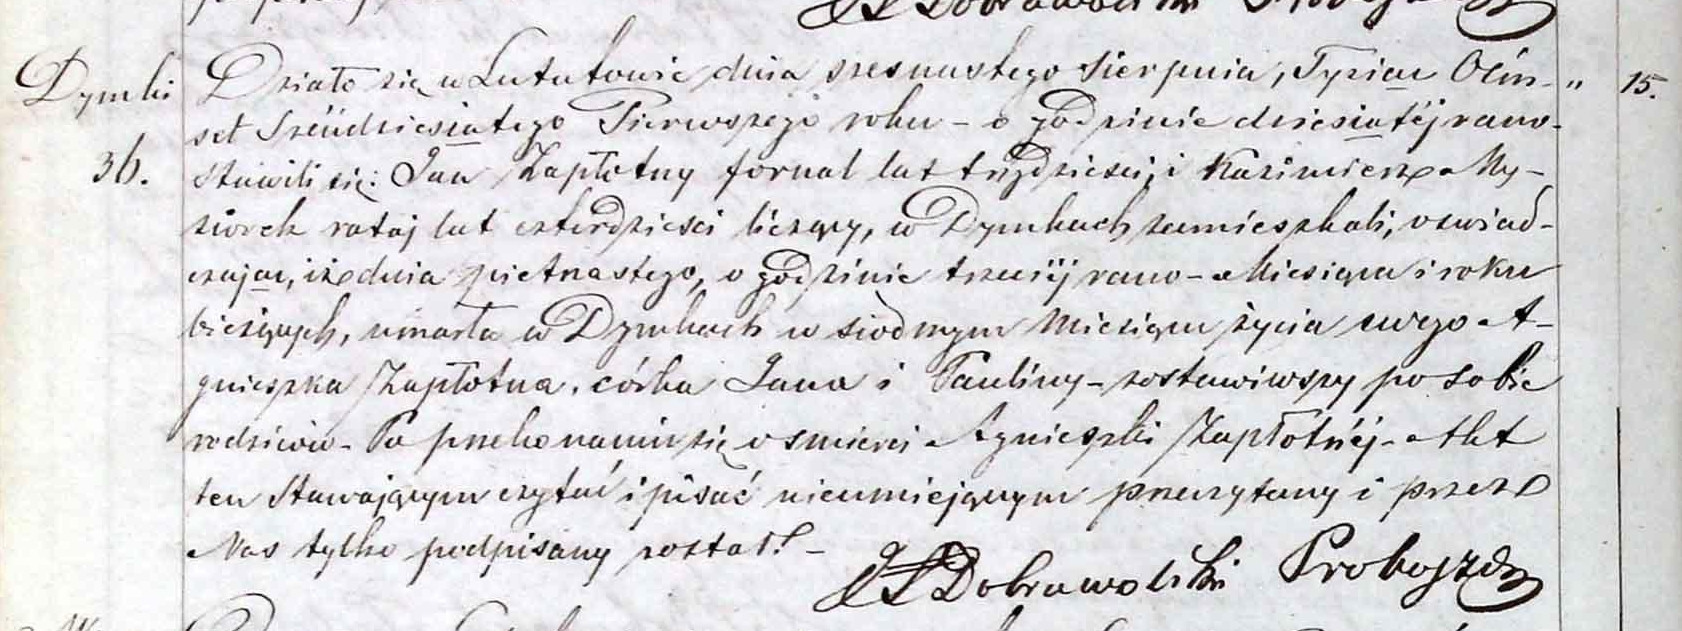 Dobrowolski Proboszcz
Dymki Działo się w Lututowie dnia szesnastego Sierpnia, Tysiąc Ośm- " 15.
set Sześćdziesiątego Pierwszego roku – o godzinie dziesiątéj rano.
36. Stawili się: Jan Zapłotny fornal lat trzydzieści, i Kazimierz My-
siorek rataj lat czterdzieści liczący, w Dymkach zamieszkali, oświad-
czając, iż dnia piętnastego, o godzinie trzeciéj rano – Miesiąca i roku
bieżących, umarła w Dymkach w siódmym Miesiącu życia swego A-
gnieszka Zapłotna, córka Jana i Pauliny – zostawiwszy po sobie
rodziców – Po przekonaniu się o śmierci Agnieszki Zapłotnéj – Akt
ten Stawającym czytać i pisać nieumiejącym przeczytany i przez
Nas tylko podpisany został! –
Dobrowolski Proboszcz